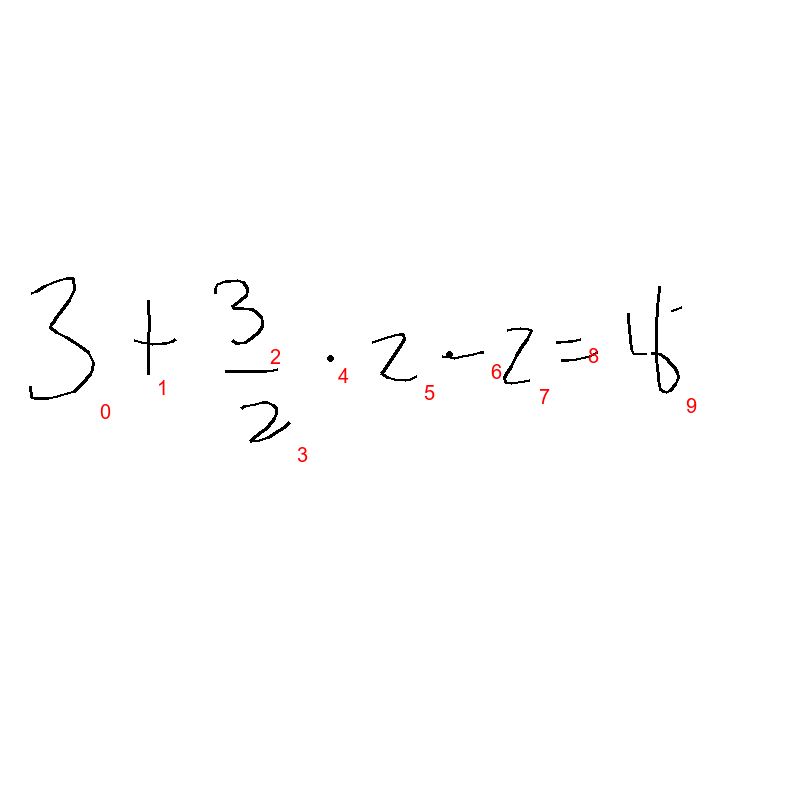 3 + 3/2 · 2 - 2 = 4
0 1 2 3 4 5 6 7 8 9